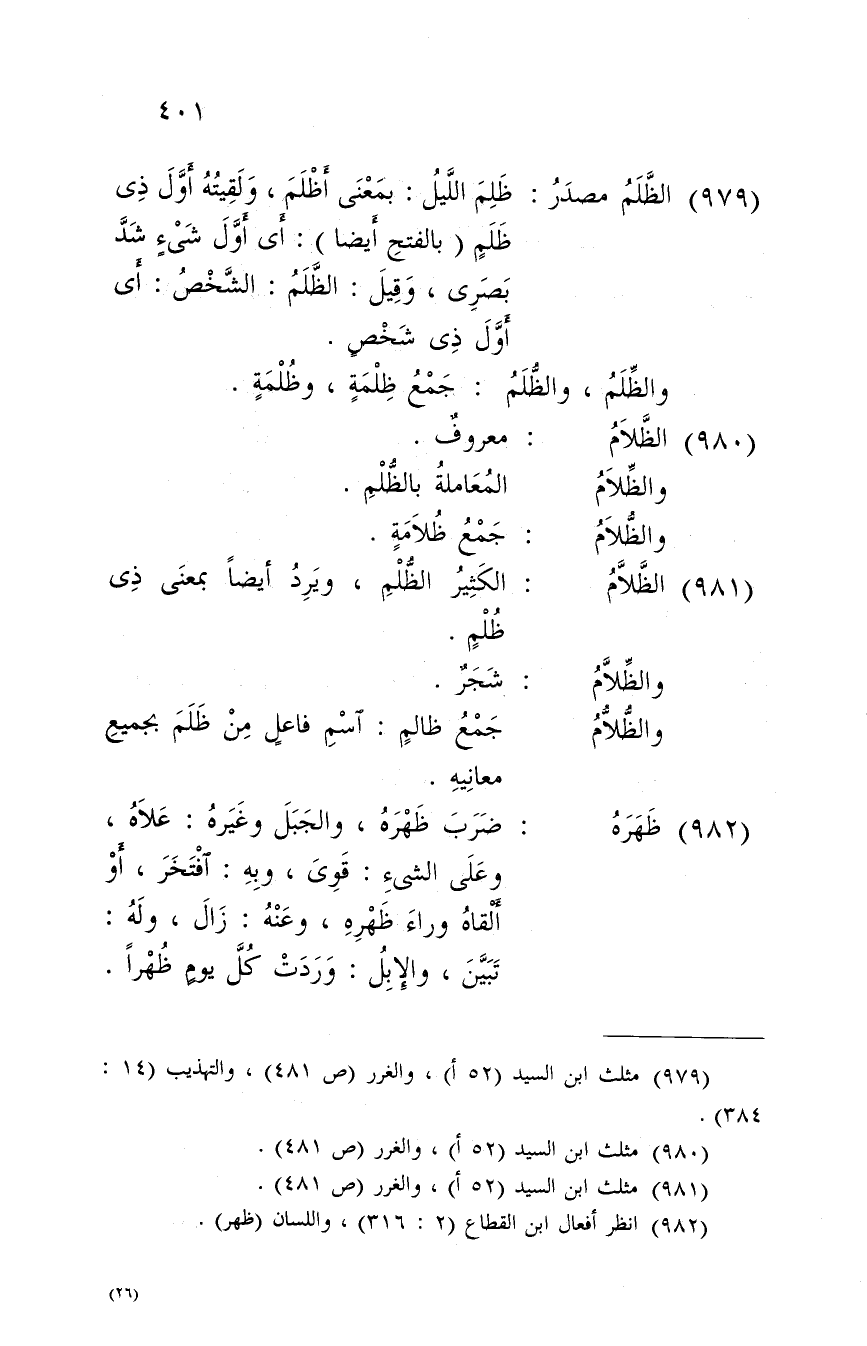 ٤٠١
(٩٧٩) الظَّلَمُ مصدَرُ : ظَلِمَ اللَّيلُ : بمَعْنَى أَظْلَمَ ، وَلَقِيتُهُ أَوَّلَ ذِى
ظَلَمٍ ( بالفتحِ أَيضا ) : أَى أَوَّلَ شَىْءٍ شَدَّ
بَصَرِى ، وَقِيلَ : الظَّلَمُ : الشَّخْصُ : أَى
أَوَّلَ ذِى شَخْصٍ .
والظِّلَمُ ، والظُّلَمُ : جَمْعُ ظِلْمَةٍ ، وظُلْمَةٍ .
(٩٨٠) الظَّلاَمُ : معروفٌ .
والظِّلاَمُ المُعَاملةُ بالظُّلْمِ .
والظُّلاَمُ : جَمْعُ ظُلاَمَةٍ .
(٩٨١) الظَّلاَّمُ : الكَثِيرُ الظُّلْمِ ، ويَرِدُ أيضاً بمعنَى ذِى
ظُلْمٍ .
والظِّلاَّمُ : شَجَرٌ .
والظُّلاَّمُ جَمْعُ ظالمٍ : ٱسْمِ فاعلٍ مِنْ ظَلَمَ بجميعِ
معانِيهِ .
(٩٨٢) ظَهَرَهُ : ضَرَبَ ظَهْرَهُ ، والجَبَلَ وغَيَرهُ : عَلاَهُ ،
وعَلَى الشىءِ : قَوِىَ ، وبِهِ : ٱفْتَخَرَ ، أَوْ
أَلْقاهُ وراءَ ظَهْرِهِ ، وعَنْهُ : زَالَ ، ولَهُ :
تَبَيَّنَ ، والإبِلُ : وَرَدَتْ كُلَّ يومٍ ظُهْراً .
(٩٧٩) مثلث ابن السيد (٥٢ أ) ، والغرر (ص ٤٨١) ، والتهذيب (١٤ :
٣٨٤) .
(٩٨٠) مثلث ابن السيد (٥٢ أ) ، والغرر (ص ٤٨١) .
(٩٨١) مثلث ابن السيد (٥٢ أ) ، والغرر (ص ٤٨١) .
(٩٨٢) انظر أفعال ابن القطاع (٢ : ٣١٦) ، واللسان (ظهر) .
(٢٦)